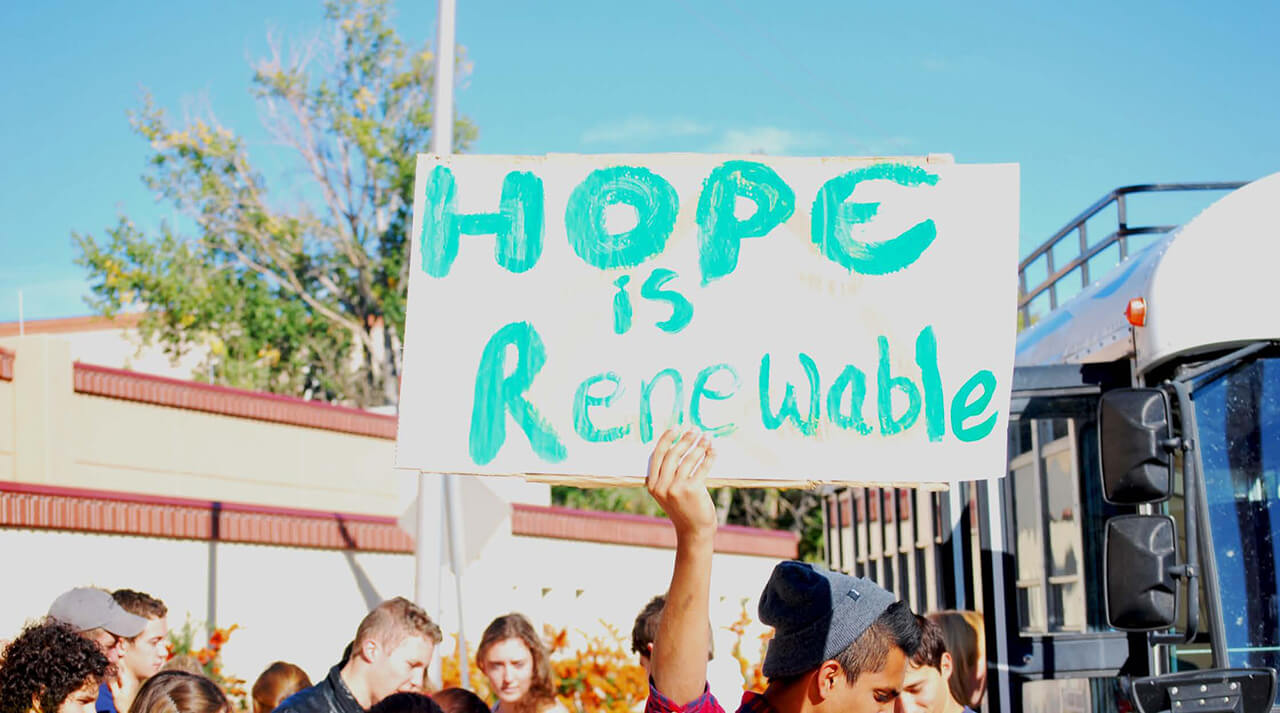 HOPE
is
Renewable